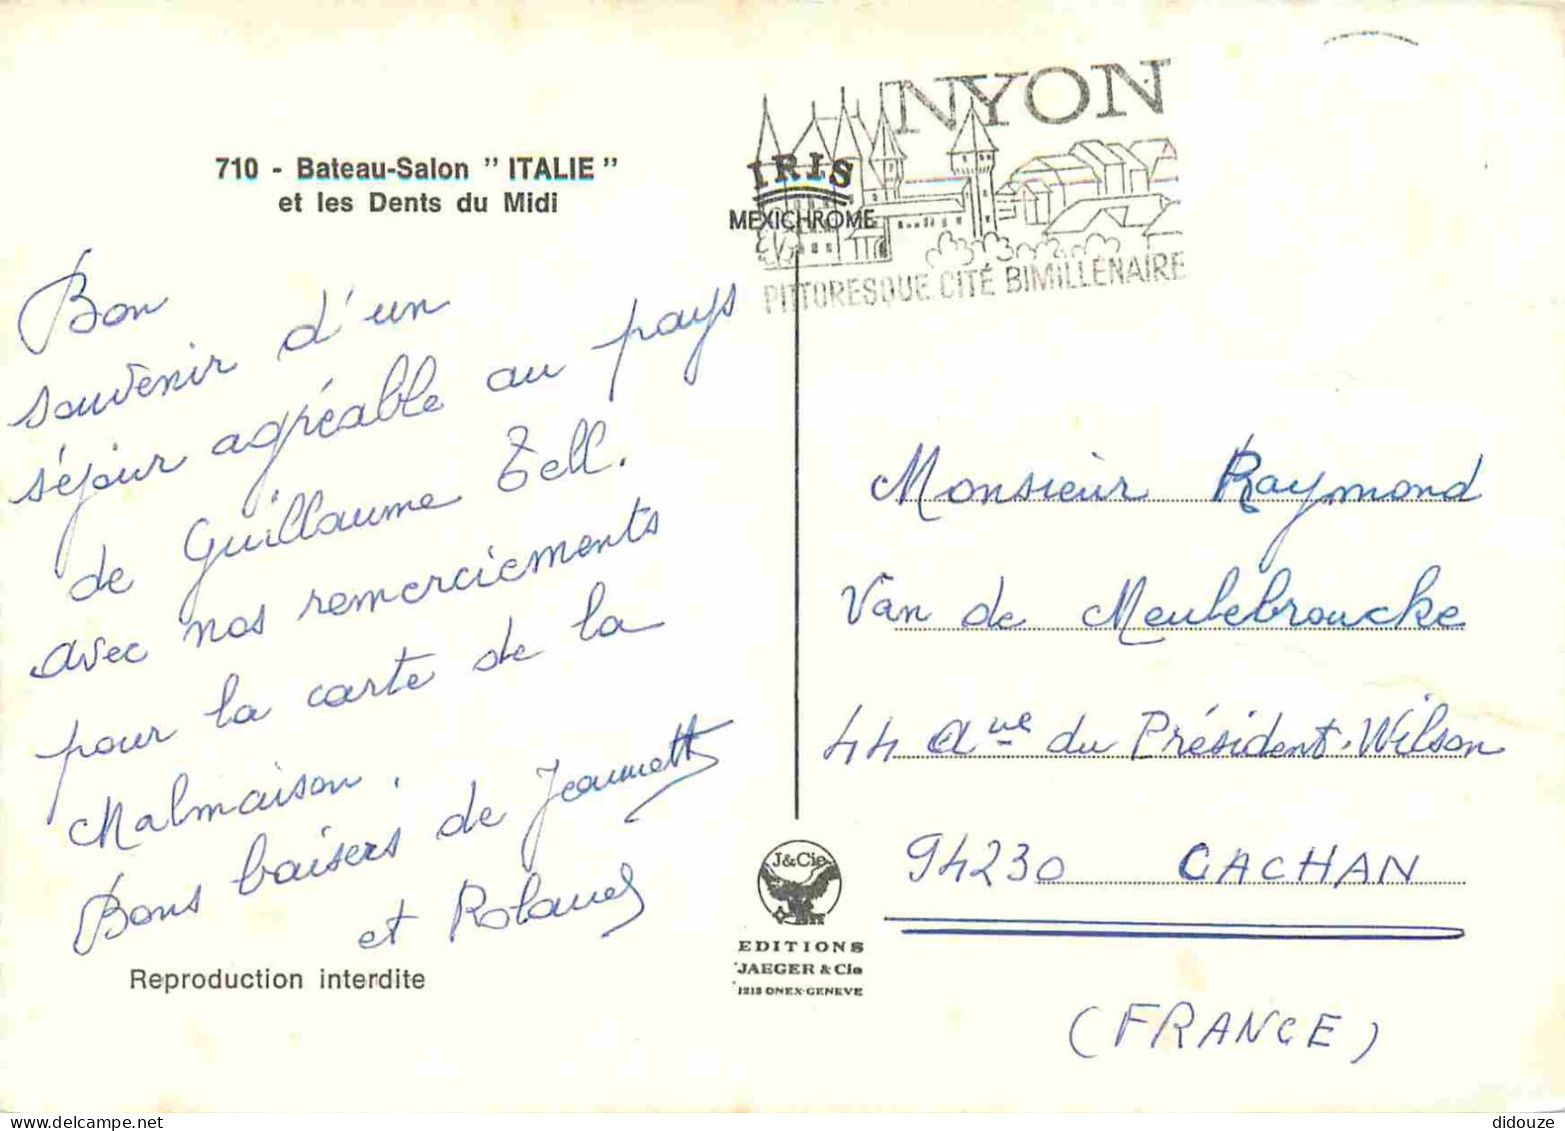 710 - Bateau-Salon " ITALIE "
et les Dents du Midi
NYON
PITTORESQUE CITÉ BIMILLÉNAIRE
IRIS
MEXICHROME
Bon
souvenir d'un
séjour agréable au pays
de Guillaume Tell.
avec nos remerciements
pour la carte de la
Malmaison.
Bons baisers de Jeannette
et Roland
Reproduction interdite
J&Cie
EDITIONS
JAEGER & Cie
1213 ONEX-GENEVE
Monsieur Raymond
Van de Meulebroucke
44 Aue du Président-Wilson
94230 CACHAN
(FRANCE)
didouze